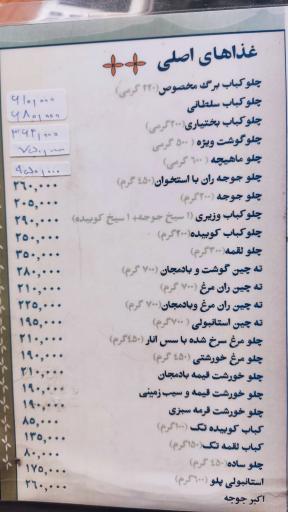 غذاهای اصلی
چلو کباب برگ مخصوص (۲۲۰ گرمی)
چلو کباب سلطانی
چلو کباب بختیاری (۲۰۰ گرمی)
چلو گوشت ویژه (۵۰۰ گرمی)
چلو ماهیچه (۶۰۰ گرمی)
چلو جوجه ران با استخوان (۴۵۰ گرم) ۲۶۰,۰۰۰
چلو جوجه (۲۰۰ گرم) ۲۰۵,۰۰۰
چلو کباب وزیری (۱ سیخ جوجه + ۱ سیخ کوبیده) ۲۹۰,۰۰۰
چلو کباب کوبیده (۲۰۰ گرم) ۲۵۰,۰۰۰
چلو لقمه (۳۰۰ گرم) ۳۵۰,۰۰۰
ته چین گوشت و بادمجان (۷۰۰ گرم) ۲۸۰,۰۰۰
ته چین ران مرغ (۷۰۰ گرم) ۲۱۰,۰۰۰
ته چین ران مرغ و بادمجان (۷۰۰ گرم) ۲۲۵,۰۰۰
ته چین استانبولی (۷۰۰ گرم) ۱۹۵,۰۰۰
چلو مرغ سرخ شده با سس انار (۴۵۰ گرم) ۲۱۰,۰۰۰
چلو مرغ خورشتی (۴۵۰ گرم) ۱۹۰,۰۰۰
چلو خورشت قیمه بادمجان ۲۱۰,۰۰۰
چلو خورشت قیمه و سیب زمینی ۱۹۰,۰۰۰
چلو خورشت قرمه سبزی ۱۹۰,۰۰۰
کباب کوبیده تک (۱۰۰ گرم) ۸۵,۰۰۰
کباب لقمه تک (۱۵۰ گرم) ۱۳۵,۰۰۰
چلو ساده (۴۵۰ گرم) ۸۰,۰۰۰
استانبولی پلو (۶۰۰ گرم) ۱۷۵,۰۰۰
اکبر جوجه ۲۶۰,۰۰۰